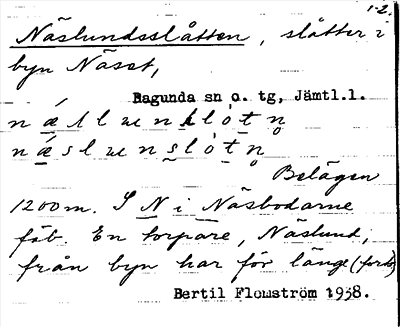 1-2.
Näslundsslåtten, slåtter i
byn Näset,
Ragunda sn o. tg, Jämtl.l.
Belägen
1200m. S N i Näsbodarne
fäb. En torpare, Näslund,
från byn har för länge (fordo)
Bertil Flomström 1938.